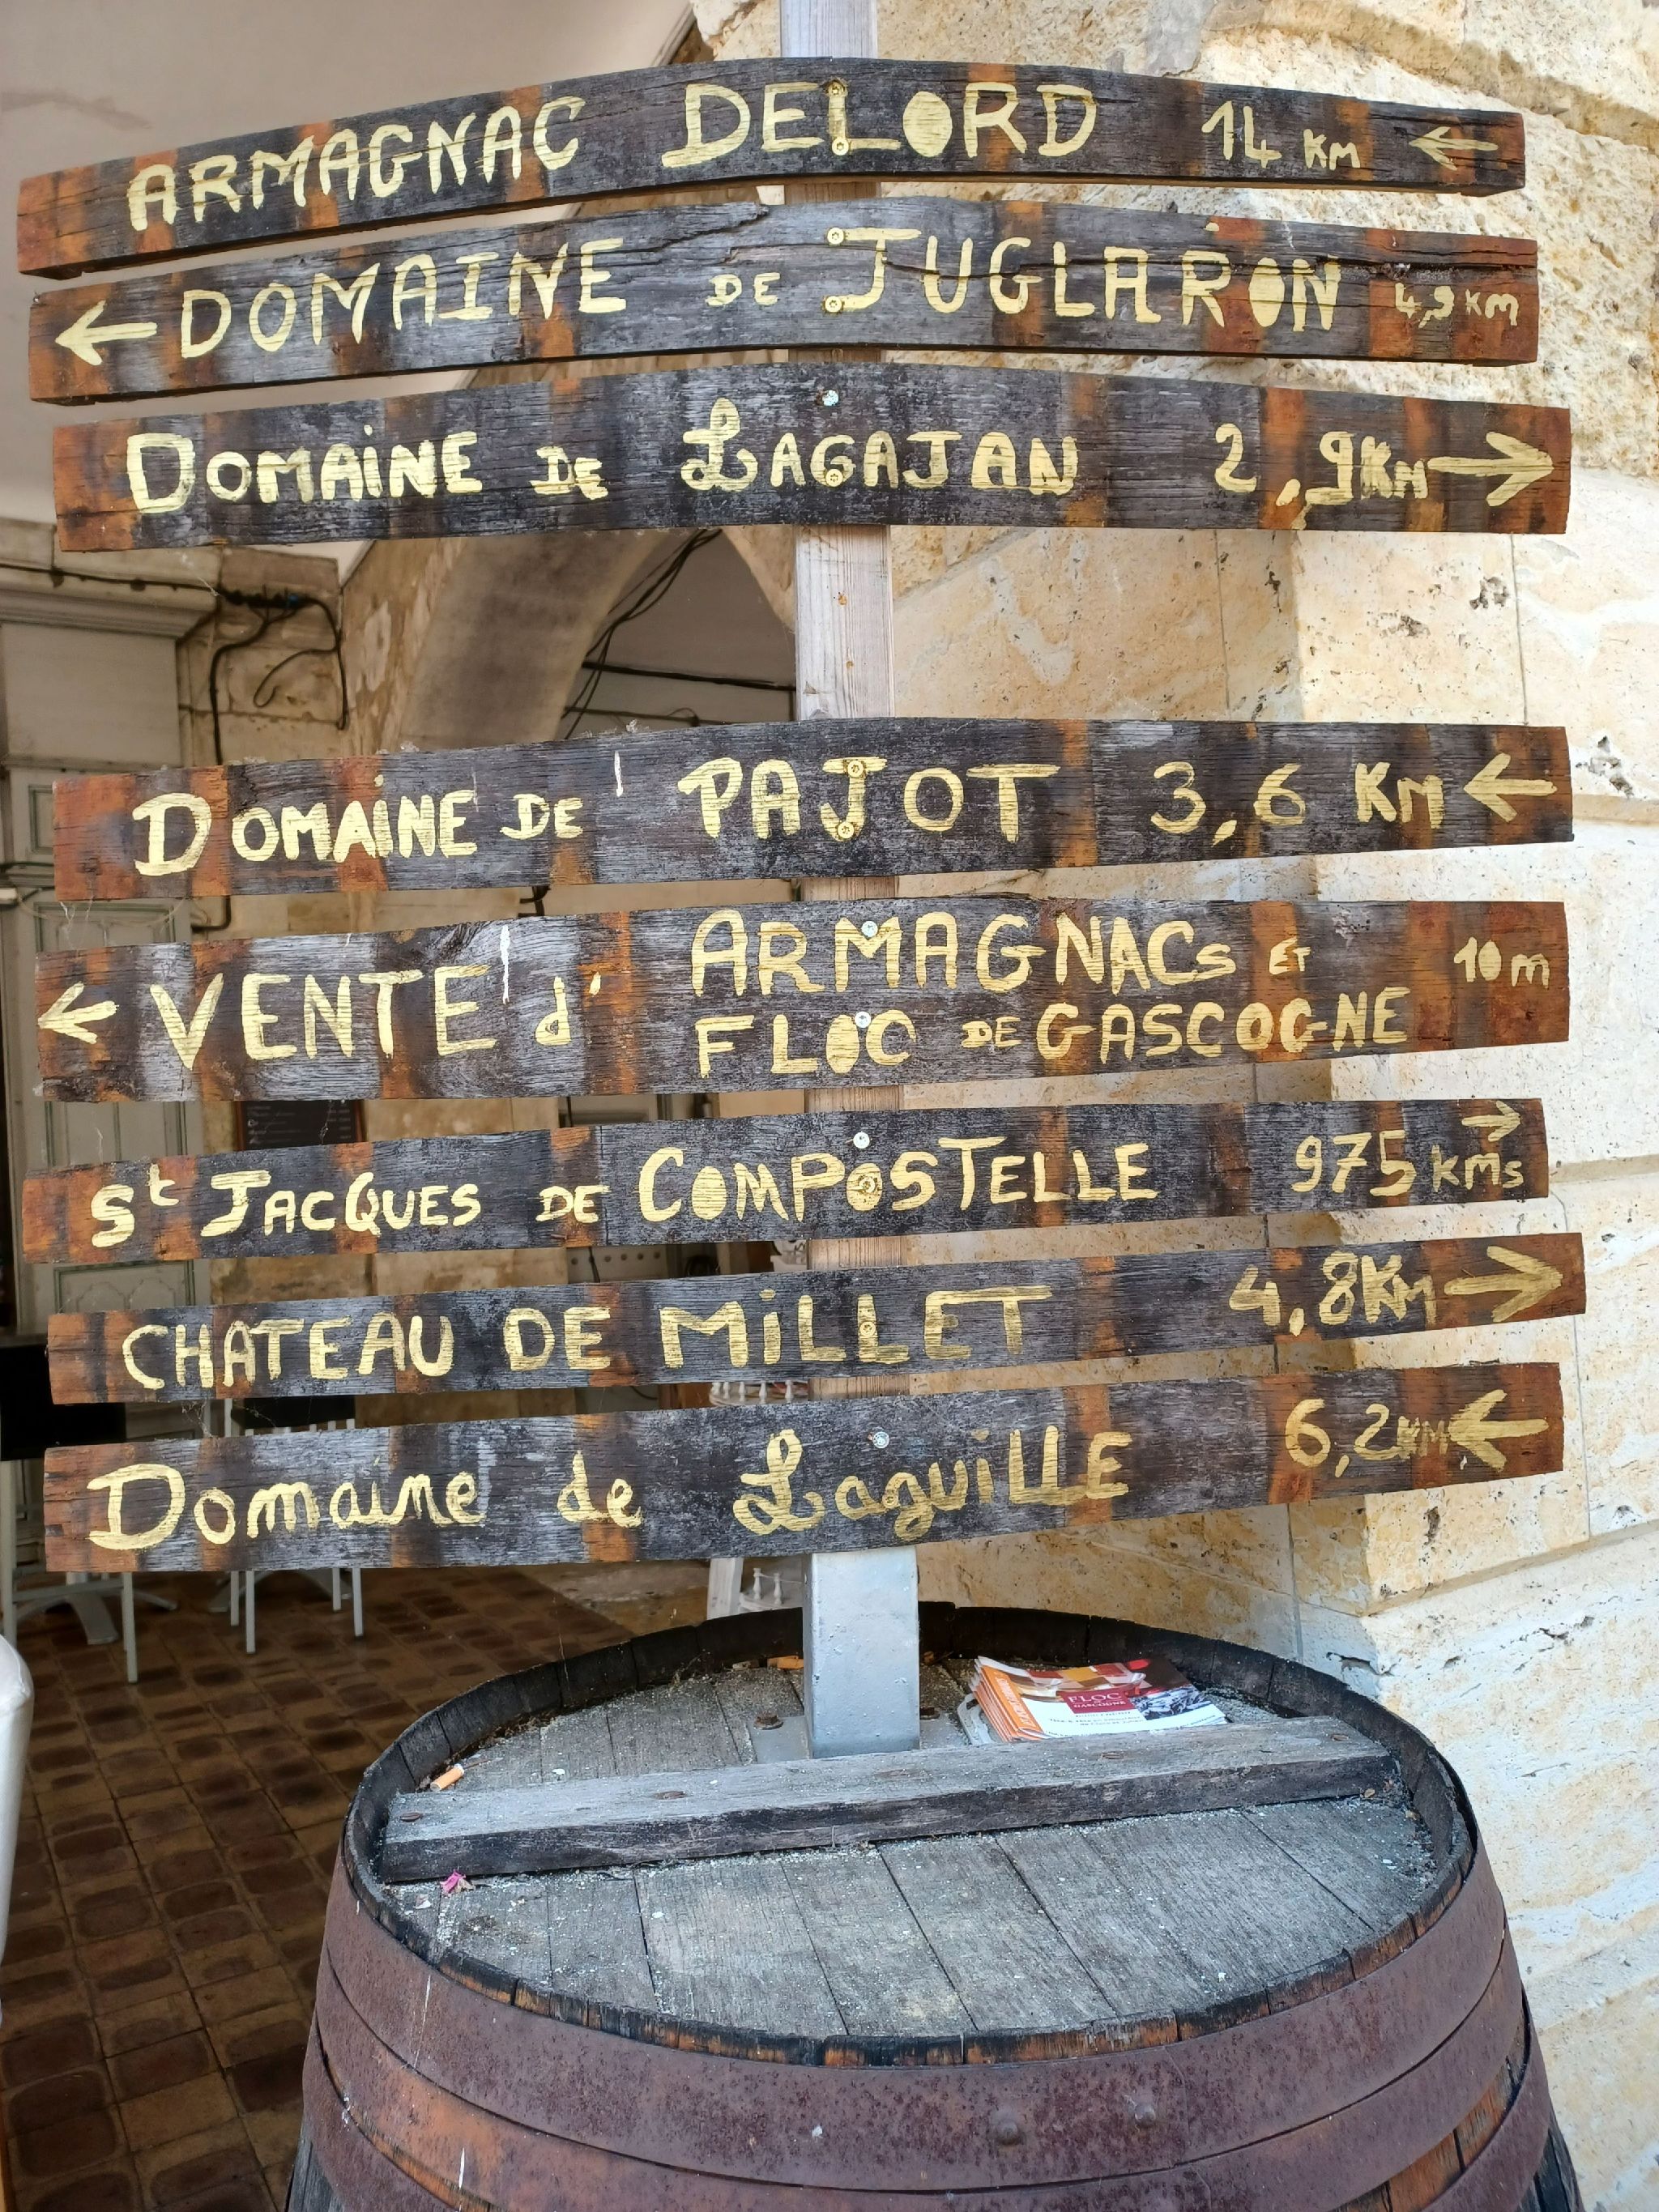 ARMAGNAC DELORD 14 KM ←
← DOMAINE DE JUGLARON 4,9 KM
DOMAiNE DE LAGAJAN 2,9KM →
DOMAiNE DE PAJOT 3,6 KM ←
← VENTE d' ARMAGNACs ET 10m
FLOC DE GASCOGNE
St JACQUES DE COMPOSTELLE 975 KMs →
CHATEAU DE MiLLET 4,8KM →
Domaine de LaguiLLE 6,2KM ←
FLOC
GASCOGNE